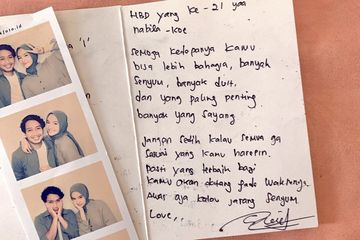 HBD yang ke-21 yaa
nabila-koe
semoga kedepanya kamu
bisa lebih bahagia, banyak
senyum, banyak duit,
dan yang paling penting
banyak yang sayang
Jangan sedih kalau semua ga
sesuai yang kamu harepin.
Pasti yang terbaik bagi
kamu akan datang pada waktunya.
awas aja kalau jarang senyum
Love,